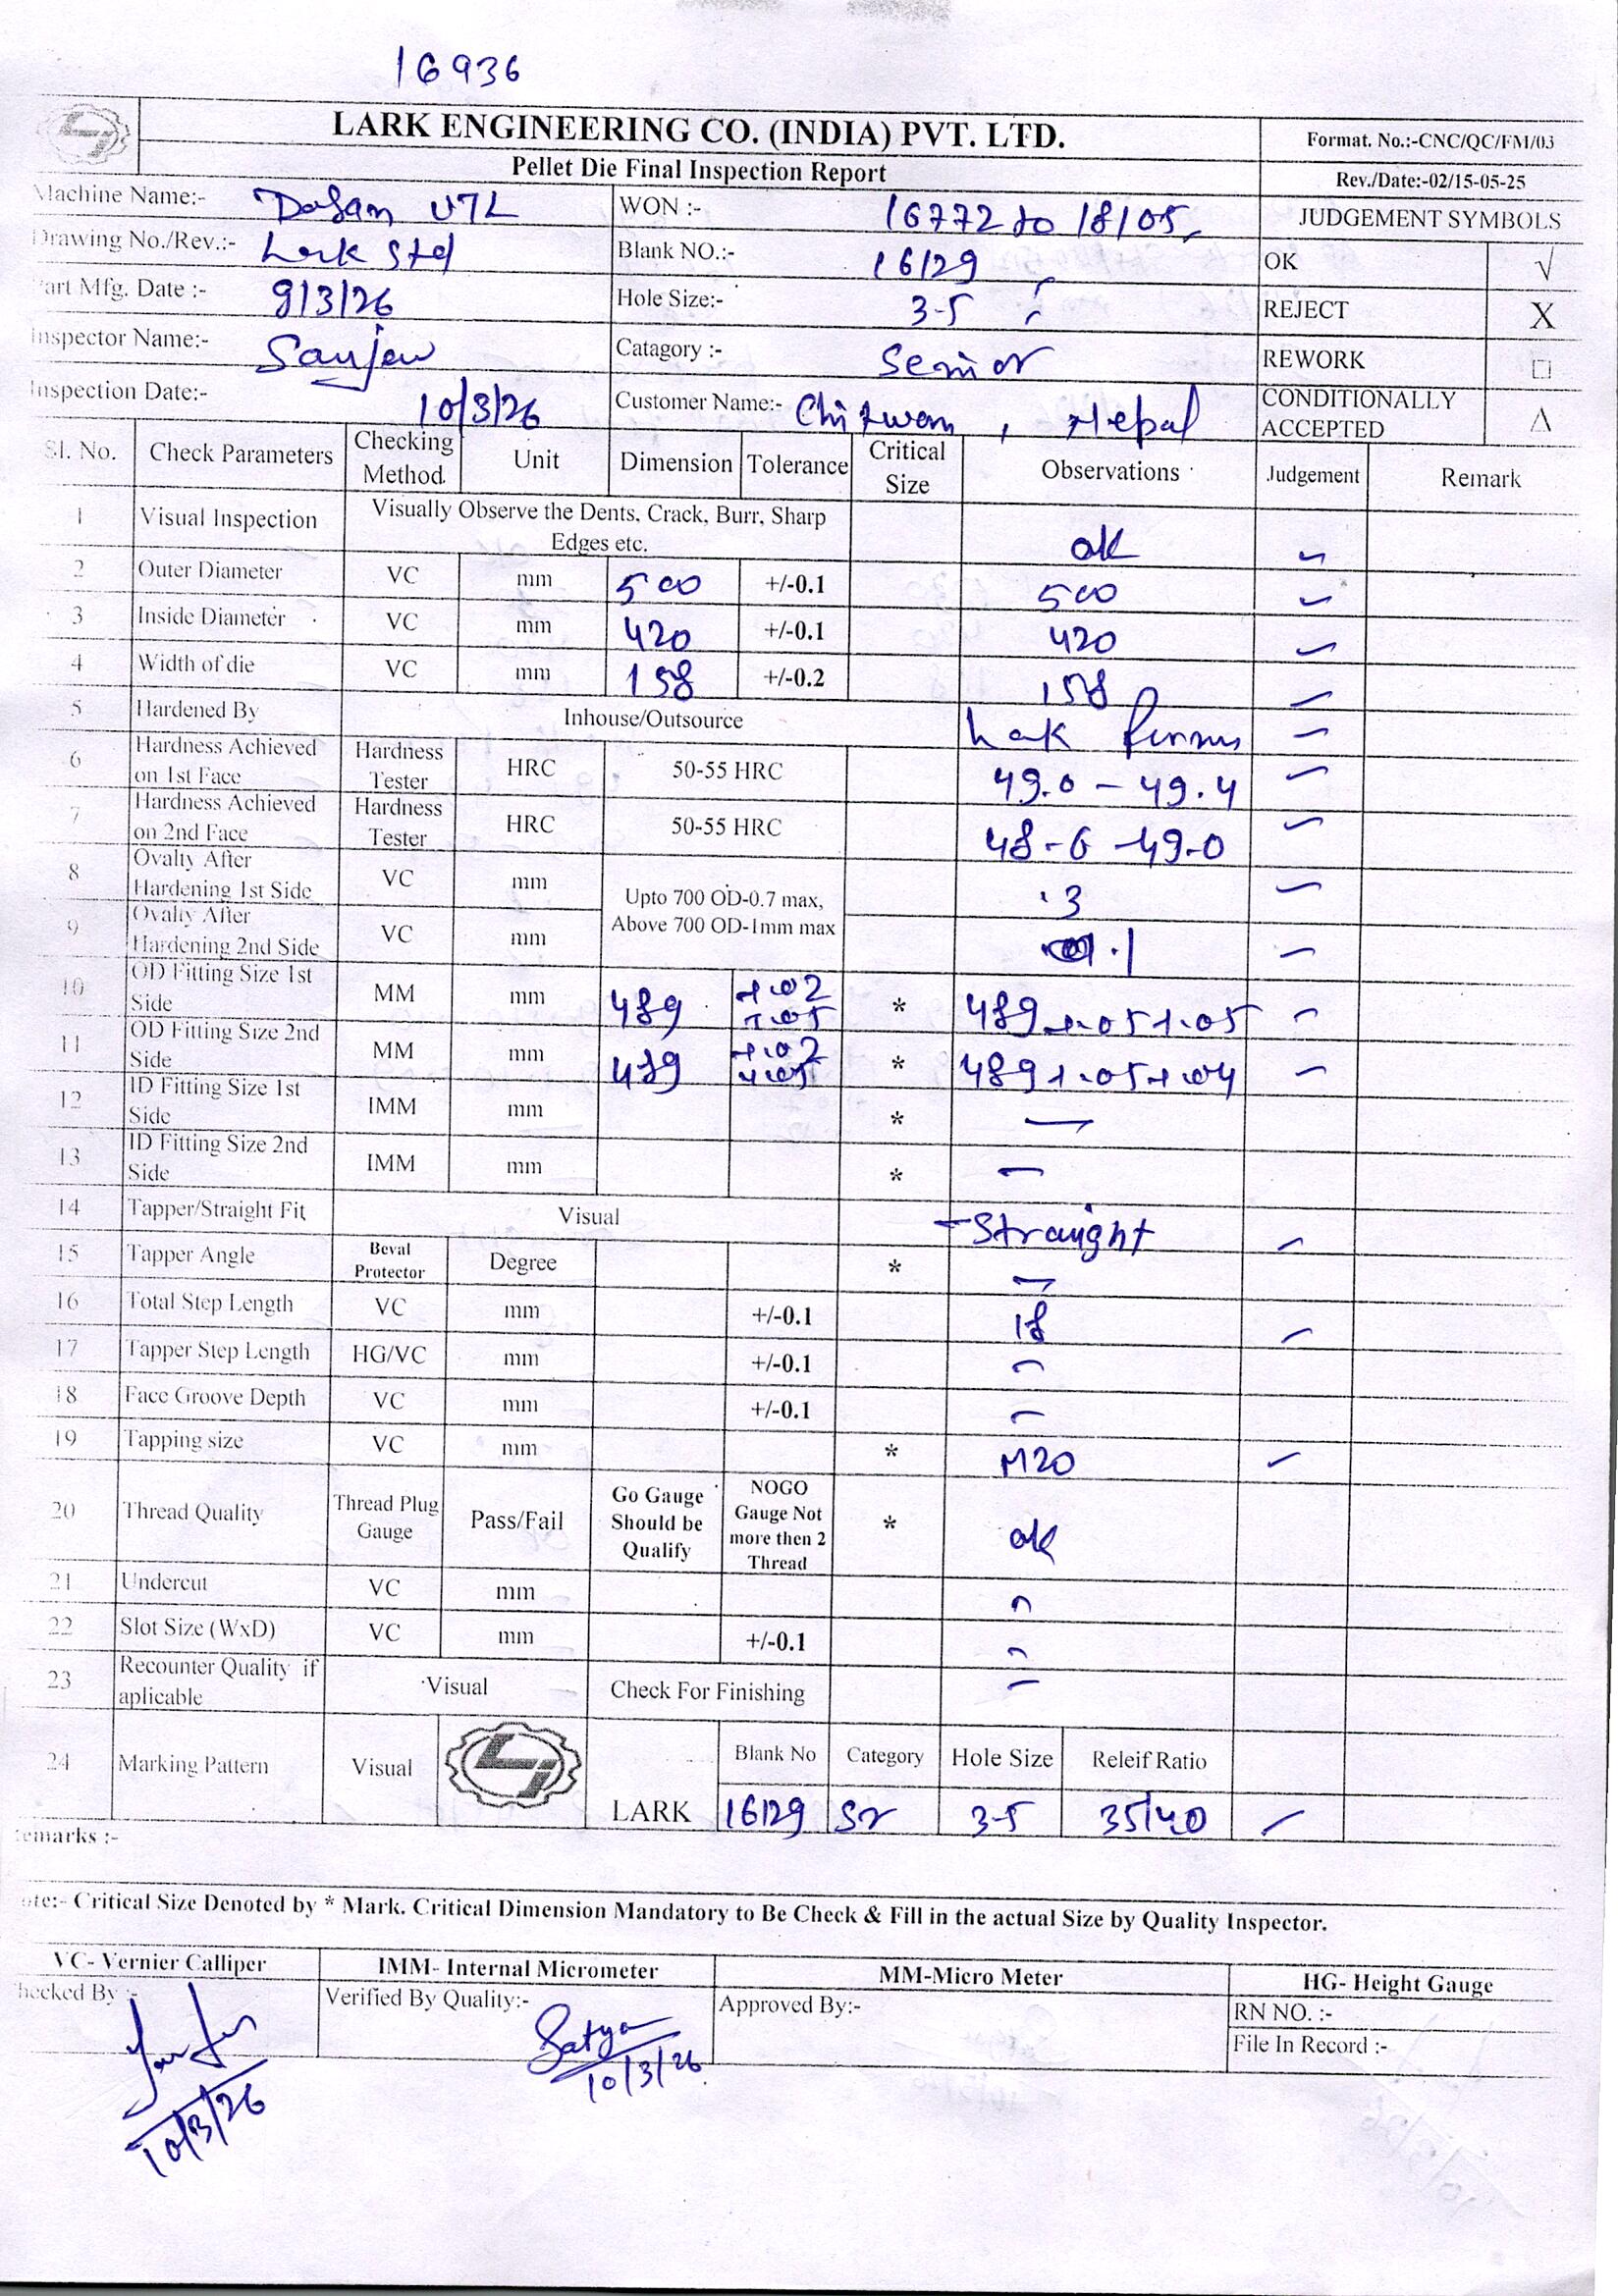 16936
LARK ENGINEERING CO. (INDIA) PVT. LTD.
Format. No.:-CNC/QC/FM/03
Pellet Die Final Inspection Report
Rev./Date:-02/15-05-25
Machine Name:-
WON :- 16772 to 18/05
JUDGEMENT SYMBOLS
Drawing No./Rev.:- Lark Std
Blank NO.:- 16129
OK √
Part Mfg. Date :- 9/3/26
Hole Size:- 3.5
REJECT X
Inspector Name:- Sanjeev
Catagory :- Senior
REWORK □
Inspection Date:- 10/3/26
Customer Name:- Chitwan, Nepal
CONDITIONALLY ACCEPTED Δ
Sl. No. Check Parameters Checking Method. Unit Dimension Tolerance Critical Size Observations Judgement Remark
1 Visual Inspection Visually Observe the Dents, Crack, Burr, Sharp Edges etc. ok ✓
2 Outer Diameter VC mm 500 +/-0.1 500 ✓
3 Inside Diameter VC mm 420 +/-0.1 420 ✓
4 Width of die VC mm 158 +/-0.2 158 ✓
5 Hardened By Inhouse/Outsource ✓
6 Hardness Achieved on 1st Face Hardness Tester HRC 50-55 HRC 49.0 - 49.4 ✓
7 Hardness Achieved on 2nd Face Hardness Tester HRC 50-55 HRC 48.6 - 49.0 ✓
8 Ovalty After Hardening 1st Side VC mm Upto 700 OD-0.7 max, Above 700 OD-1mm max .3 ✓
9 Ovalty After Hardening 2nd Side VC mm .1 ✓
10 OD Fitting Size 1st Side MM mm 489 +.02 +.05 * 489 +.05 +.05 ✓
11 OD Fitting Size 2nd Side MM mm 489 +.02 +.05 * 489 +.05 +.04 ✓
12 ID Fitting Size 1st Side IMM mm * —
13 ID Fitting Size 2nd Side IMM mm * —
14 Tapper/Straight Fit Visual Straight ✓
15 Tapper Angle Beval Protector Degree * —
16 Total Step Length VC mm +/-0.1 18 ✓
17 Tapper Step Length HG/VC mm +/-0.1 —
18 Face Groove Depth VC mm +/-0.1 —
19 Tapping size VC mm * M20 ✓
20 Thread Quality Thread Plug Gauge Pass/Fail Go Gauge Should be Qualify NOGO Gauge Not more then 2 Thread * ok
21 Undercut VC mm —
22 Slot Size (WxD) VC mm +/-0.1 —
23 Recounter Quality if aplicable Visual Check For Finishing —
24 Marking Pattern Visual LARK Blank No Category Hole Size Releif Ratio
16129 Sr 3.5 35/40 ✓
emarks :-
ote:- Critical Size Denoted by * Mark. Critical Dimension Mandatory to Be Check & Fill in the actual Size by Quality Inspector.
VC- Vernier Calliper IMM- Internal Micrometer MM-Micro Meter HG- Height Gauge
hecked By :- Verified By Quality:- Satya Approved By:- RN NO. :-
File In Record :-
10/3/26
10/3/26